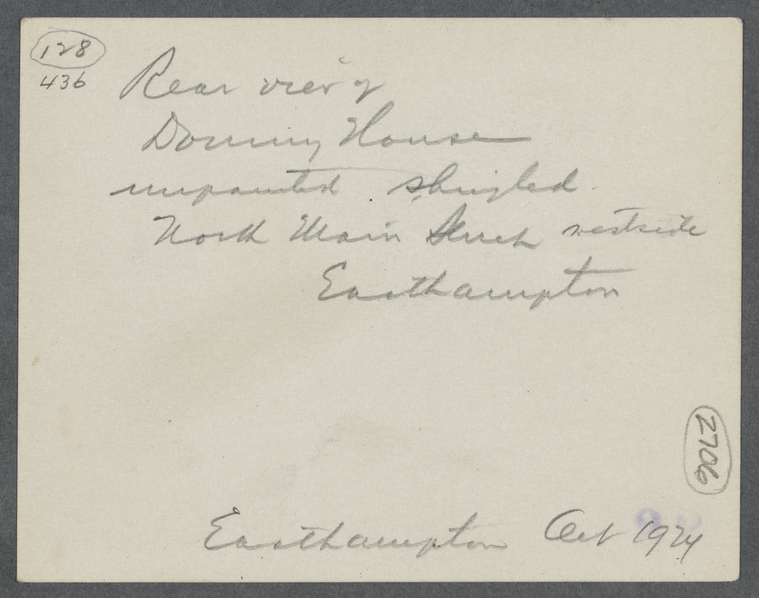 128
436
Rear view of
Dominy House
unpainted shingled.
North Main Street westside
Easthampton
2706
Easthampton Oct 1924